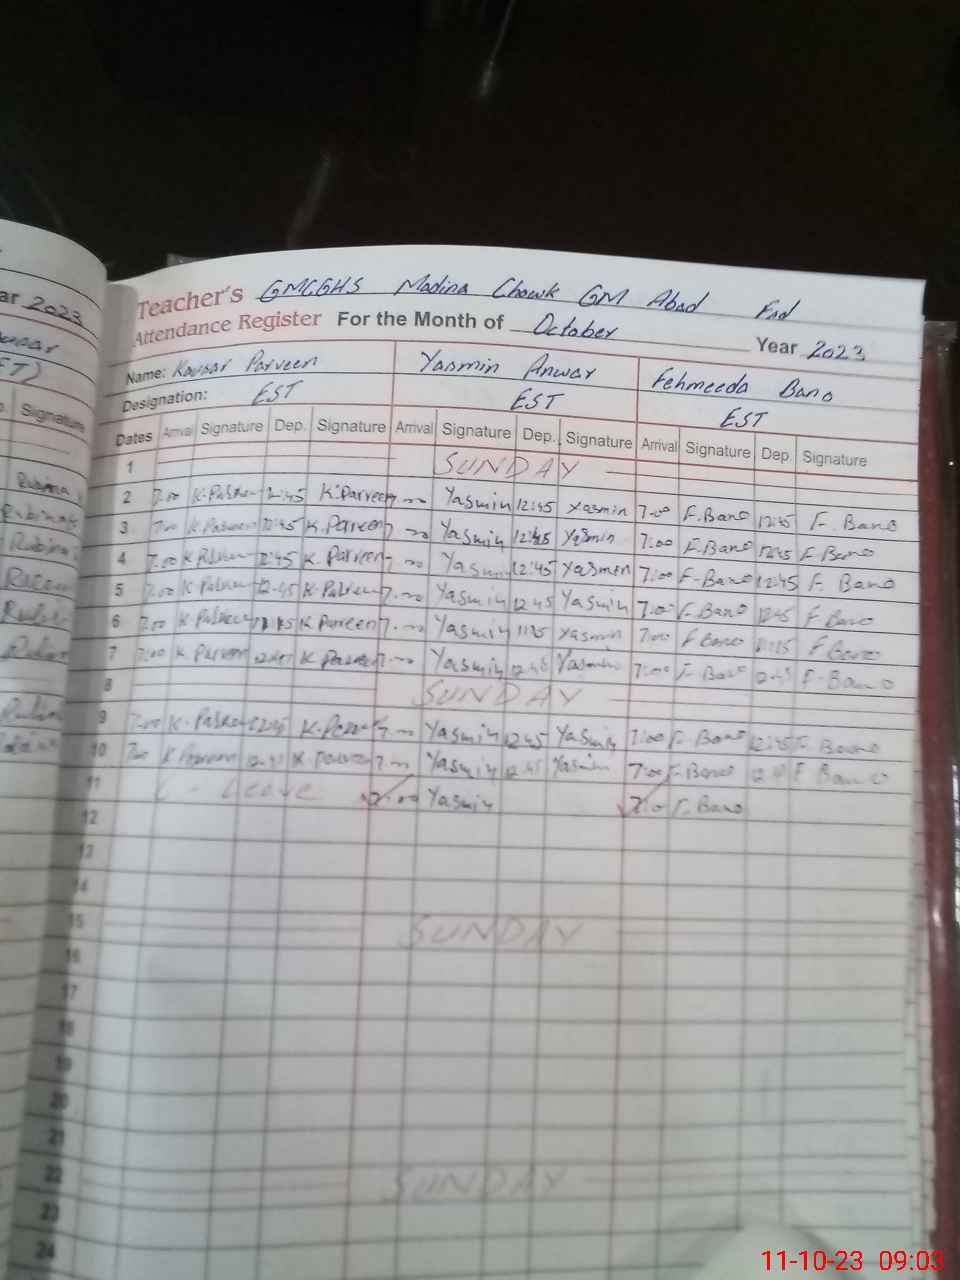 Teacher's GMCGHS Madina Chowk GM Abad Fsd
Attendance Register For the Month of October Year 2023
Name: Kousar Parveen Yasmin Anwar Fehmeeda Bano
Designation: EST EST EST
Dates Arrival Signature Dep. Signature Arrival Signature Dep. Signature Arrival Signature Dep. Signature
1 SUNDAY
2 7.00 K.Parveen 12:45 K.Parveen 7.00 Yasmin 12:45 Yasmin 7.00 F.Bano 12:45 F. Bano
3 7.00 K.Parveen 12:45 K.Parveen 7.00 Yasmin 12:45 Yasmin 7:00 F.Bano 12:45 F.Bano
4 7.00 K.Parveen 12:45 K.Parveen 7.00 Yasmin 12:45 Yasmen 7:00 F-Bano 12:45 F. Bano
5 7.00 K.Parveen 12.45 K.Parveen 7.00 Yasmin 12 45 Yasmin 7.00 F.Bano 12:45 F.Bano
6 7.00 K.Parveen K.Parveen 7.00 Yasmin 11:15 Yasmin 7:00 F Bano 11:15 F Bano
7 7:00 K.Parveen 12:45 K.Parveen 7.00 Yasmin 12.45 Yasmin 7:00 F-Bano 12:45 F-Bano
8 SUNDAY
9 7.00 K-Parveen 12:45 K.Parveen 7.00 Yasmin 12:45 Yasmin 7:00 F-Bano 12:45 F. Bano
10 7.00 K Parveen 12.45 K Parveen 7.00 Yasmin 12:45 Yasmin 7:00 F-Bano 12:45 F Bano
11 C - Leave 7:00 Yasmin 7:00 F-Bano
12
13
14
15 SUNDAY
16
17
18
19
20
21
22 SUNDAY
23
24
11-10-23 09:03